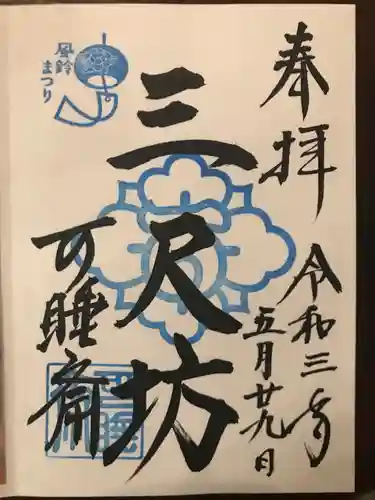 奉拝
令和三年
五月廿九日
三尺坊
風鈴
まつり
可睡斎